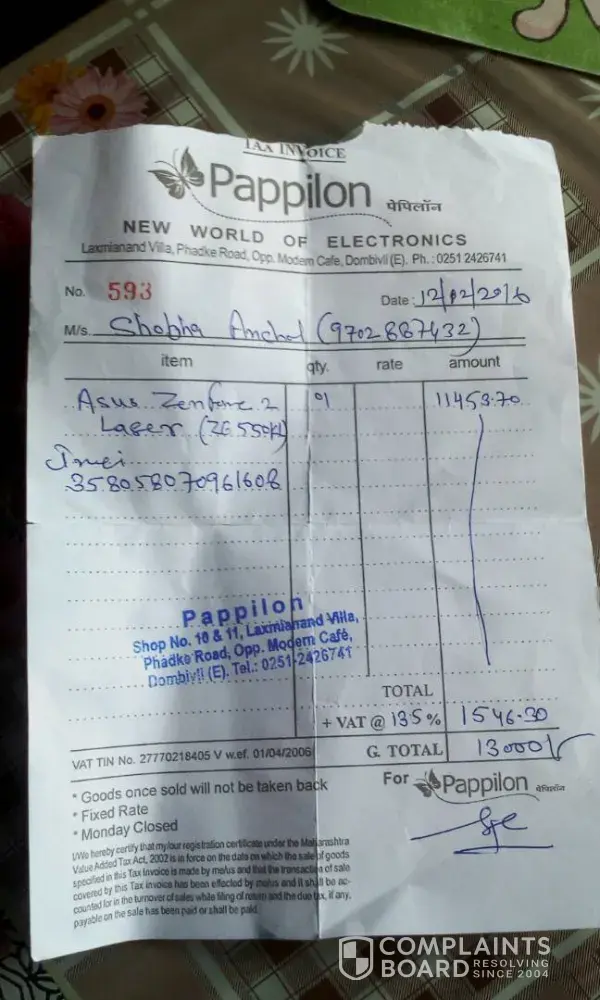 TAX INVOICE
Pappilon पेपिलॉन
NEW WORLD OF ELECTRONICS
Laxmianand Villa, Phadke Road, Opp. Modern Cafe, Dombivli (E). Ph. : 0251 2426741
No. 593
Date : 12/02/2016
M/s. Shobha Anchal (9702887432)
item qty. rate amount
Asus Zenfone 2 01 11453.70
Laser (ZE 550KL)
Imei
358058070961608
Pappilon
Shop No. 10 & 11, Laxmianand Villa,
Phadke Road, Opp. Modern Café,
Dombivli (E). Tel.: 0251-2426741
TOTAL
+ VAT @ 13.5 % 1546.30
VAT TIN No. 27770218405 V w.ef. 01/04/2006 G. TOTAL 13000/-
* Goods once sold will not be taken back
* Fixed Rate
* Monday Closed
For Pappilon पेपिलॉन
I/We hereby certify that my/our registration certificate under the Maharashtra
Value Added Tax Act, 2002 is in force on the date on which the sale of goods
specified in this Tax Invoice is made by me/us and that the transaction of sale
covered by this Tax invoice has been effected by me/us and it shall be ac-
counted for in the turnover of sales while filing of return and the due tax, if any,
payable on the sale has been paid or shall be paid.
COMPLAINTS
BOARD RESOLVING
SINCE 2004